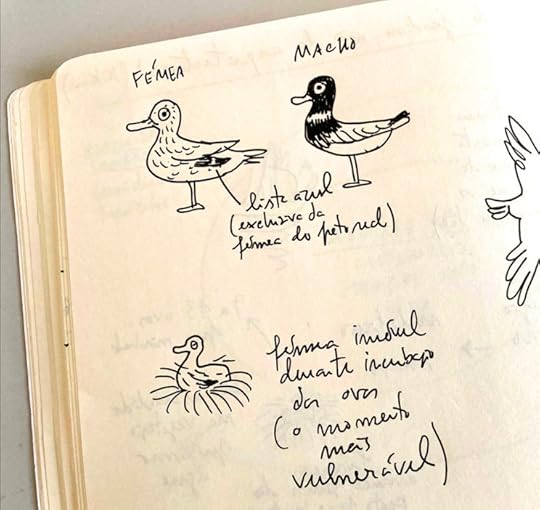 FÉMEA
MACHO
lista azul
(exclusiva da
fémea do pato real)
fémea imóvel
durante incubação
dos ovos
(o momento
mais
vulnerável)